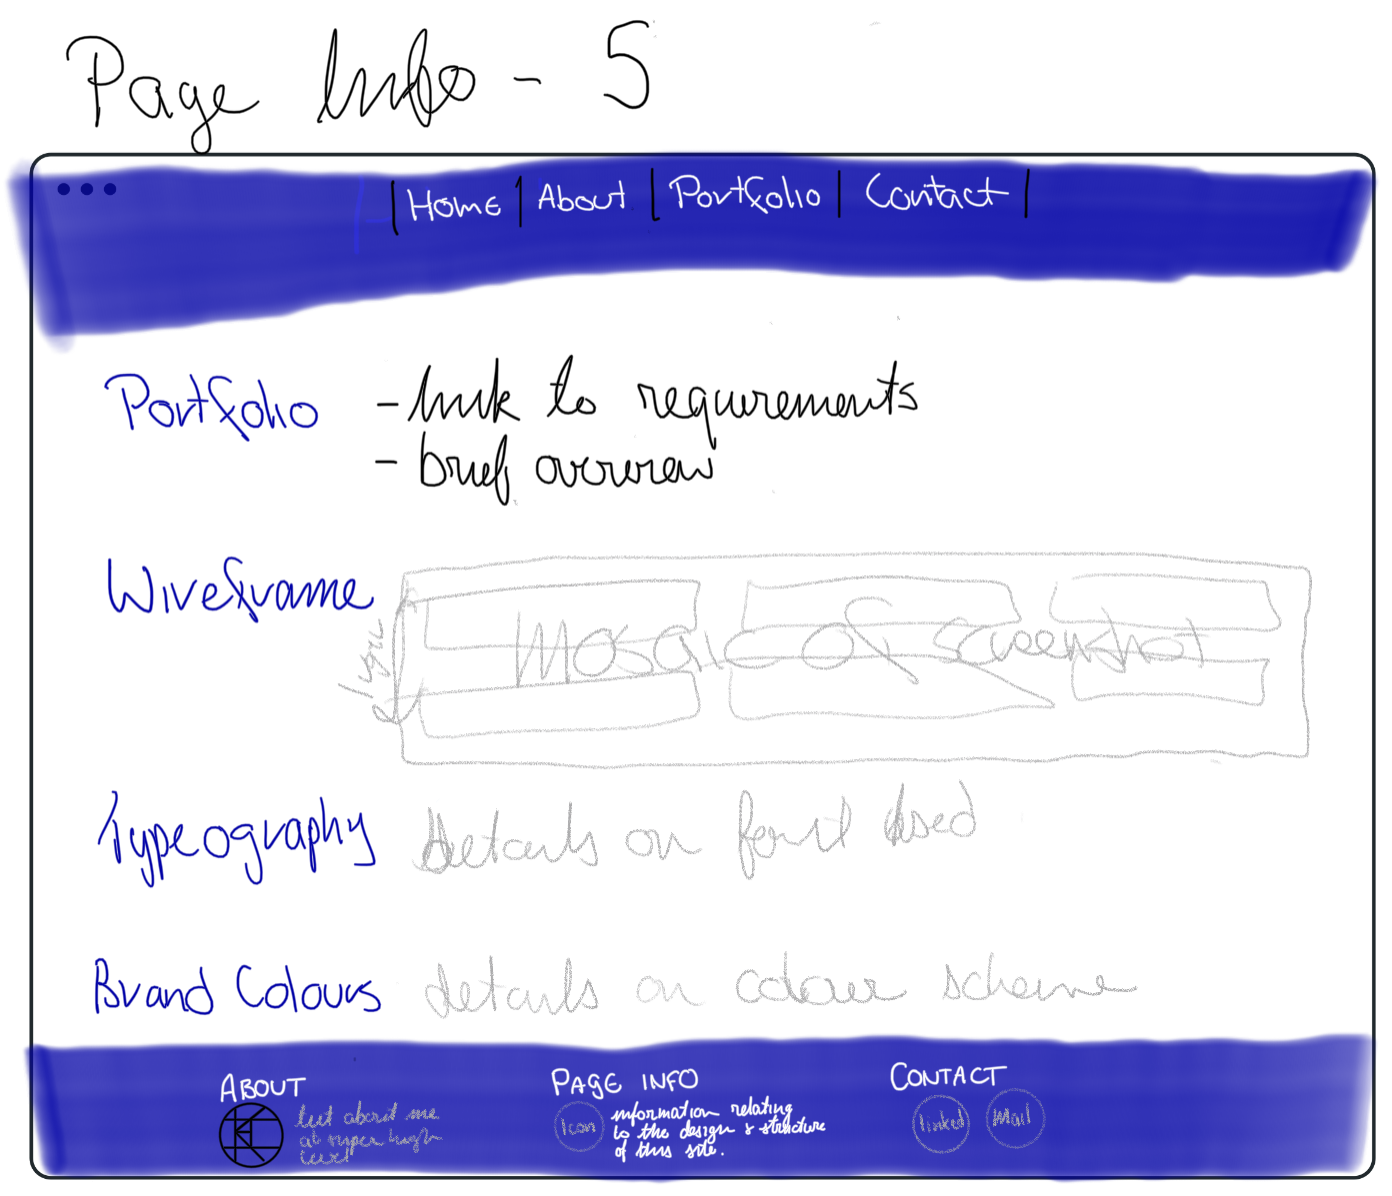 Page Info - 5
Home | About | Portfolio | Contact
Portfolio
- link to requirements
- brief overview
Wireframe
Mosaic of screenshot
Typeography
details on font used
Brand Colours
details on colour scheme
ABOUT
text about me
at super high
level
PAGE INFO
Icon
information relating
to the design & structure
of this site.
CONTACT
linked
Mail